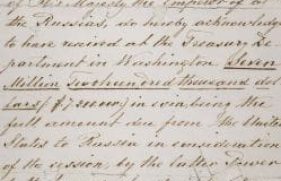 of His Majesty the Emperor of all
the Russias, do hereby acknowledge
to have recieved at the Treasury De-
partment in Washington Seven
Million Two hundred thousand dol
lars ($7,200,000) in coin, being the
full amount due from the United
States to Russia in consideration
of the cession, by the latter Power